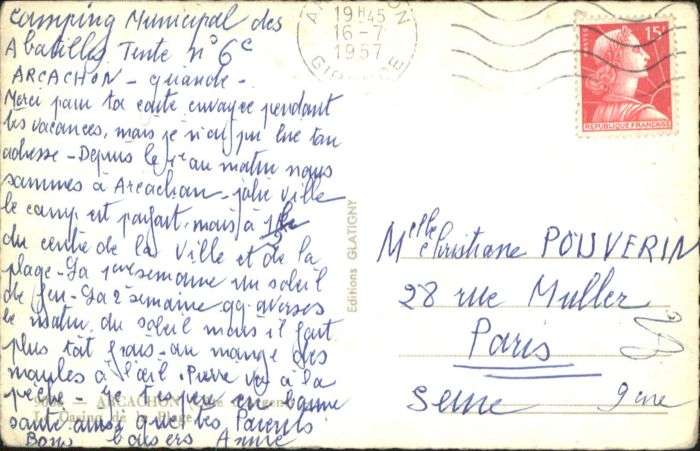 Camping Municipal des
Abatilles Tente n° 6c
ARCACHON - gironde -
Merci pour ta carte envoyée pendant
tes vacances, mais je n'ai pu lire ton
adresse - Depuis le 1er au matin nous
sommes à Arcachon - jolie ville
le camp est parfait, mais à
du centre de la ville et de la
plage - La 1ere semaine un soleil
de feu - La 2e semaine qq averses
le matin, du soleil mais il fait
plus tôt frais - on mange des
moules à l'œil. Pierre va à la
pêche - je t'espère en bonne
santé ainsi que tes Parents
Bons baisers Annie
ARCACHON
Le Casino de la Plage
Editions GLATIGNY
ARCACHON
19H45
16-7
1957
GIRONDE
15F
POSTES
REPUBLIQUE FRANÇAISE
Melle Christiane POUVERIN
28 rue Muller
Paris
Seine